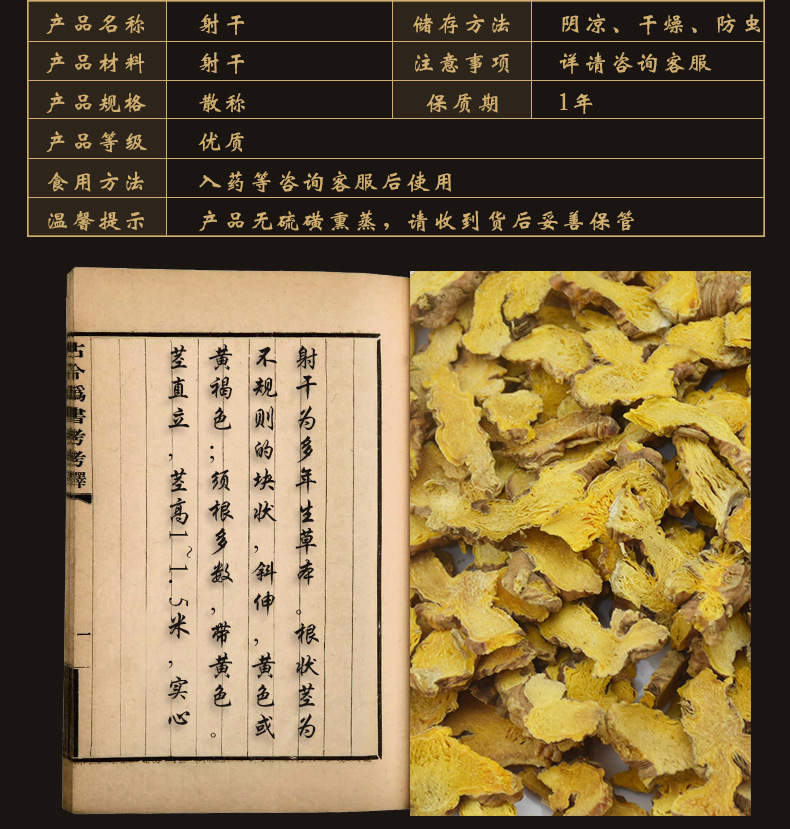 产品名称 射干 储存方法 阴凉、干燥、防虫
产品材料 射干 注意事项 详请咨询客服
产品规格 散称 保质期 1年
产品等级 优质
食用方法 入药等咨询客服后使用
温馨提示 产品无硫磺熏蒸，请收到货后妥善保管
射干为多年生草本。根状茎为
不规则的块状，斜伸，黄色或
黄褐色；须根多数，带黄色。
茎直立，茎高1~1.5米，实心
古今为书考考释
一